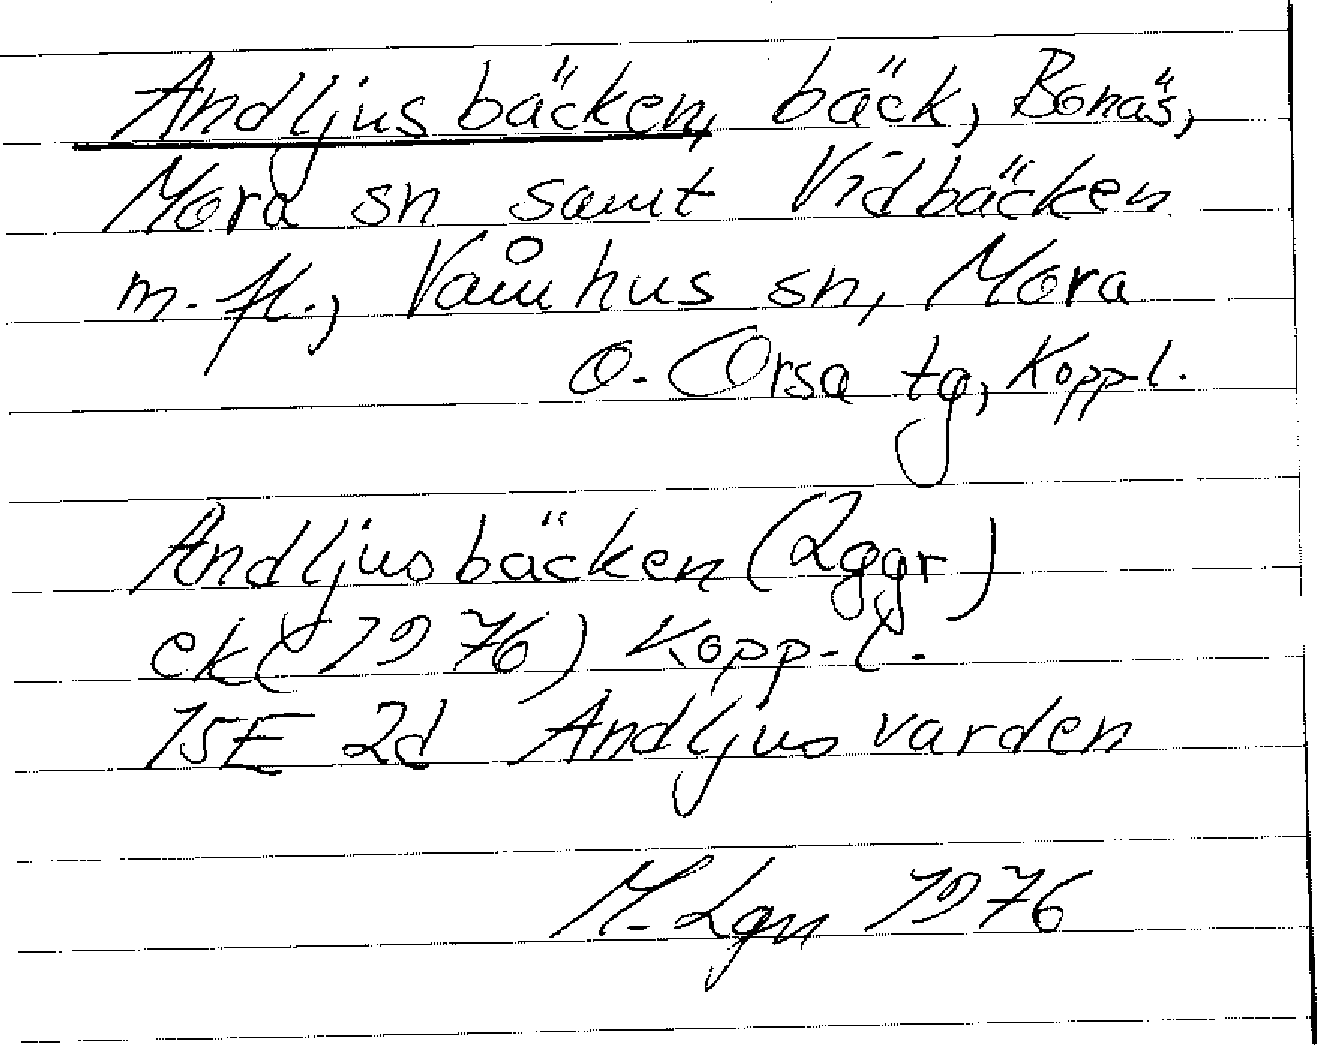 Andljusbäcken, bäck, Bonäs,
Mora sn samt Vidbäcken
m.fl., Våmhus sn, Mora
o. Orsa tg, Kopp-l.
Andljusbäcken (2ggr)
ek (1976) Kopp-l.
15E 2d Andljusvarden
M. Lgn 1976